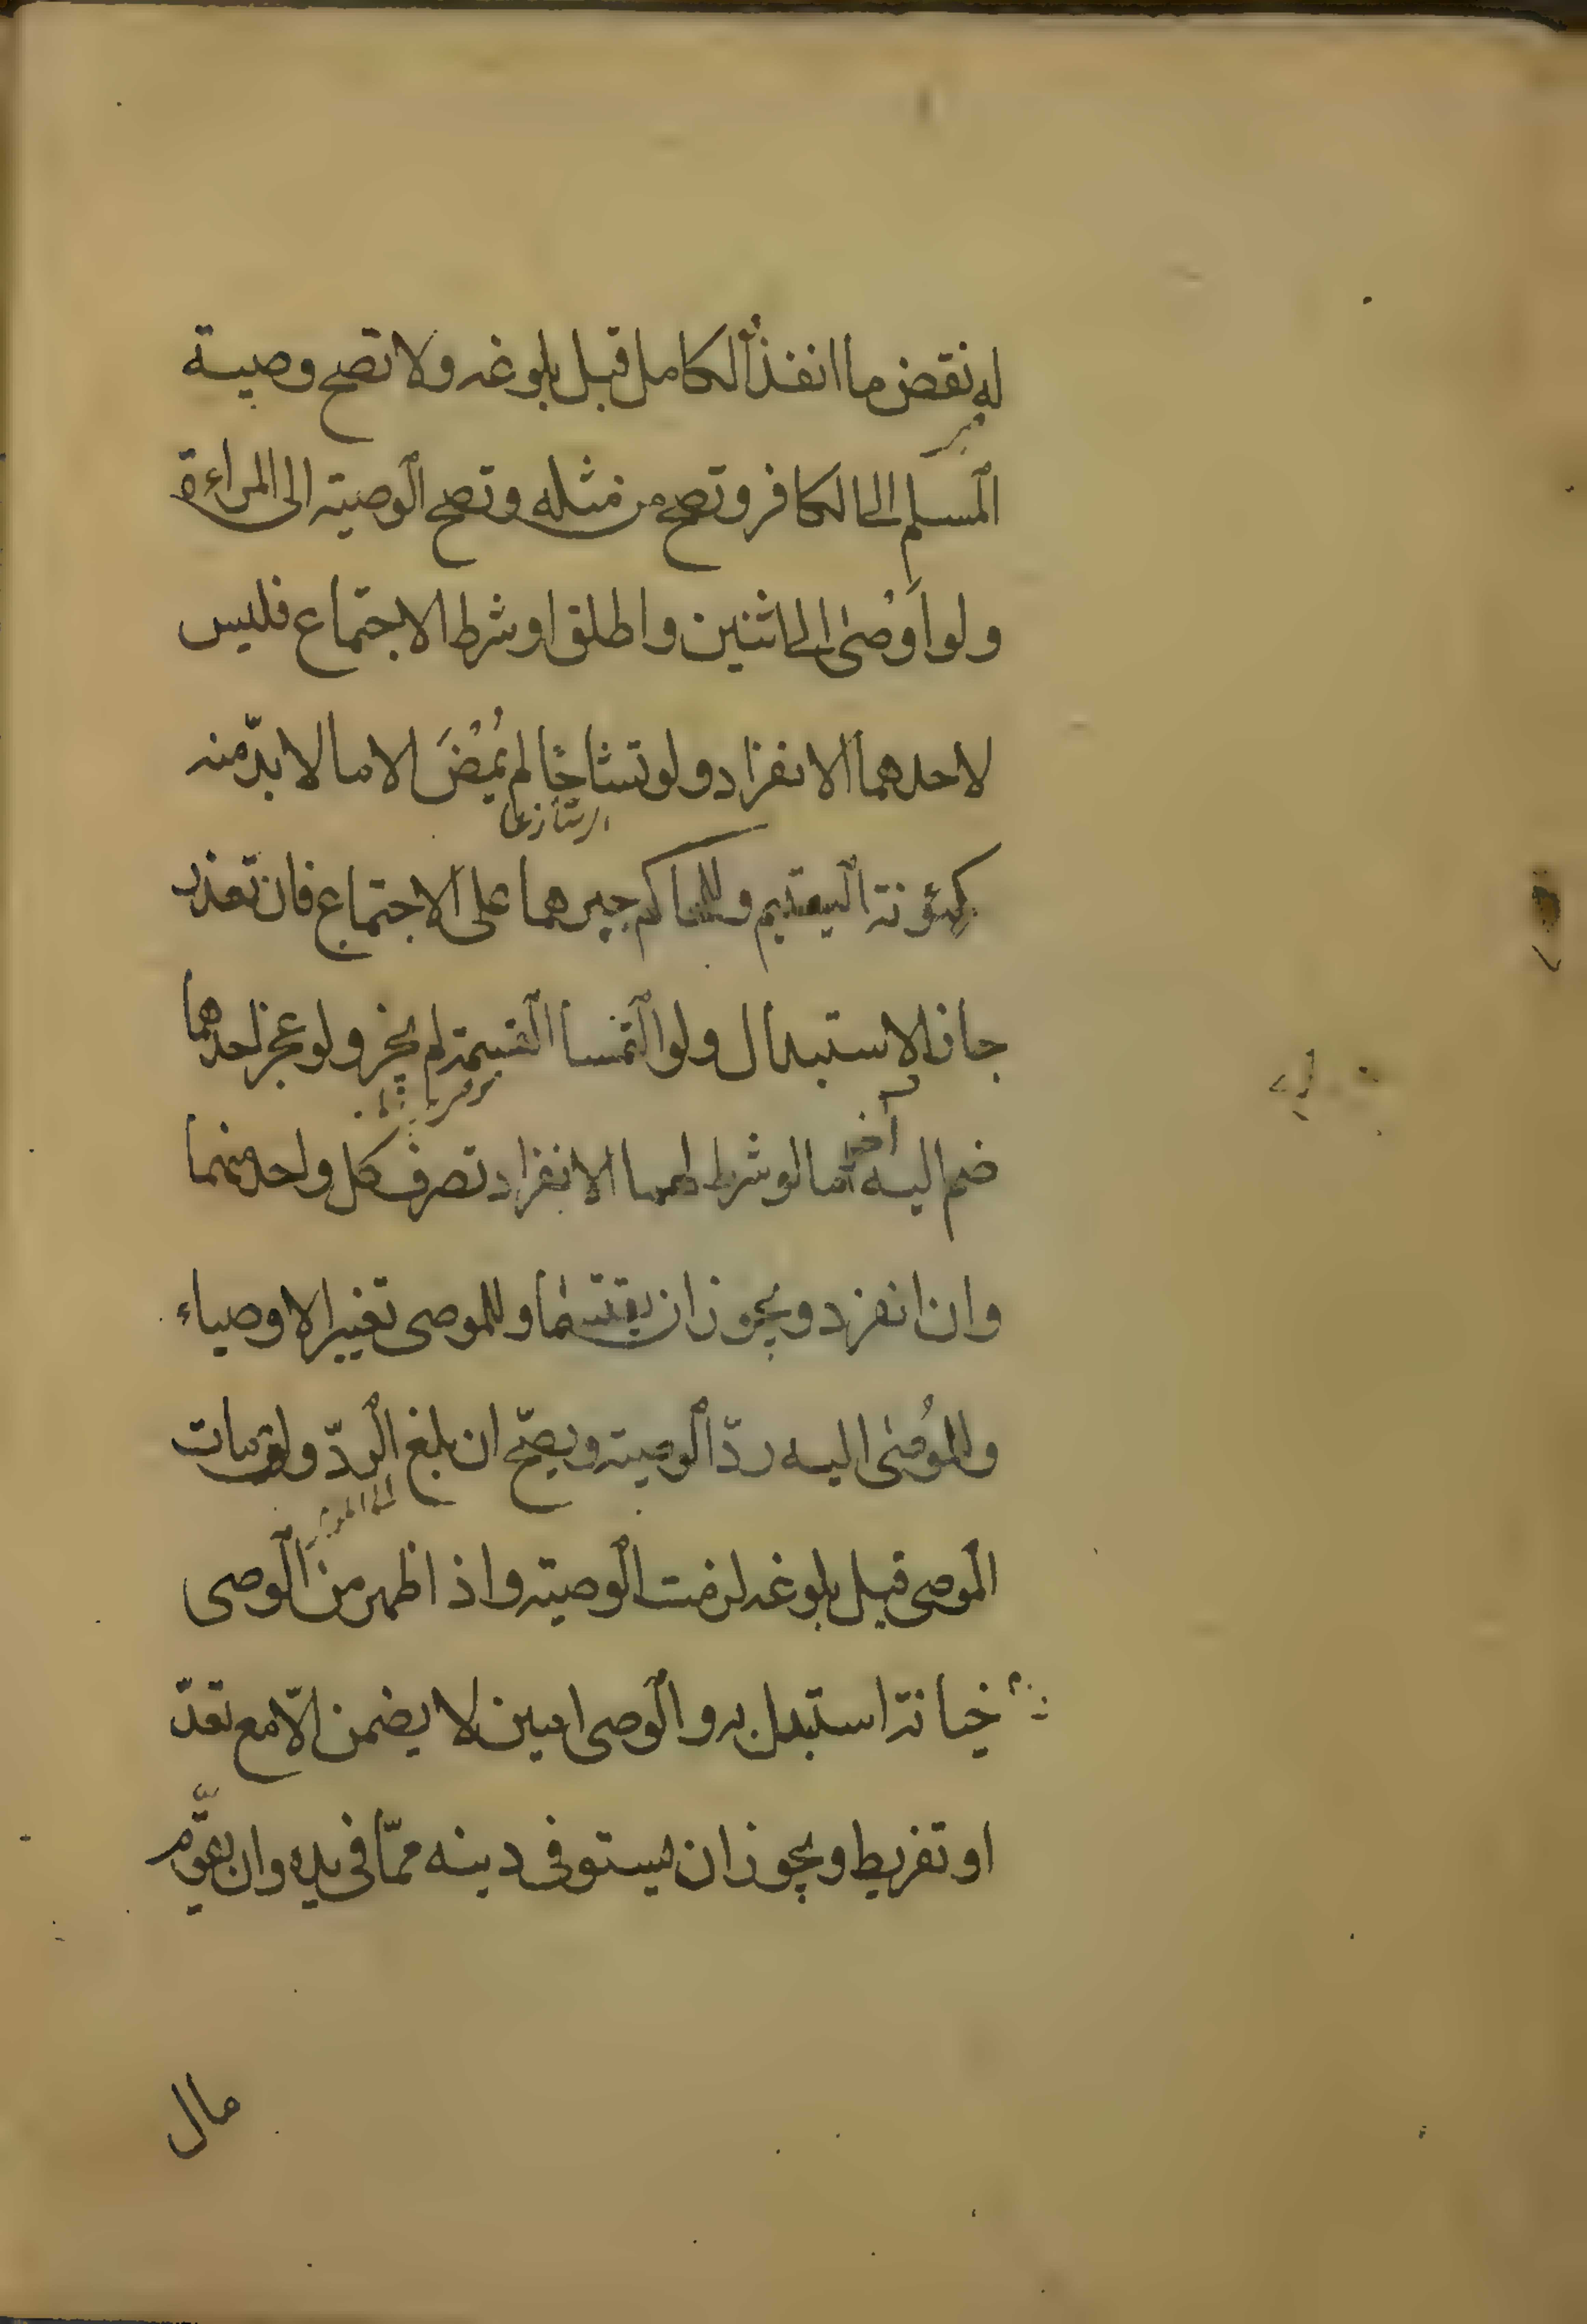 له نقض ما انفذ الكامل قبل بلوغه ولا تصح وصية
المسلم الى الكافر وتصح من مثله وتصح الوصية الى المراءة
ولو اوصى الى اثنين واطلق او شرط الاجتماع فليس
لاحدهما الانفراد ولو تشاحّا لم يُمْضَ الا ما لا بدّ منه
كمؤنة اليتيم وللحاكم جبرهما على الاجتماع فان تعذر
جاز الاستبدال ولو التمسا القسمة لم يجز ولو عجز احدهما
ضم اليه آخر اما لو شرط لهما الانفراد تصرف كل واحد منهما
وان انفرد ويجوز ان يقتسما وللموصى تغيير الاوصياء
وللمُوصٰى اليه ردّ الوصية ويصحّ ان بلغ الردّ ولو مات
الموصى قبل بلوغه لزمت الوصية واذا ظهر من الوصى
خيانة استبدل به والوصى امين لا يضمن الّا مع تعدّ
او تفريط ويجوز ان يستوفى دينه ممّا فى يده وان يقوّم
مال